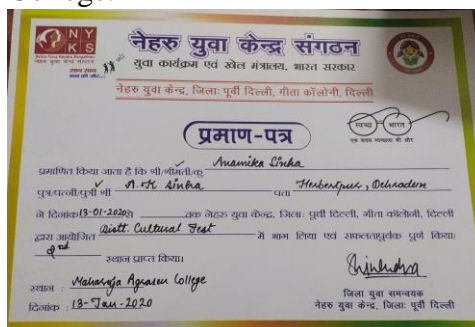 NY
KS
नेहरू युवा केन्द्र संगठन
युवा कार्यक्रम एवं खेल मंत्रालय, भारत सरकार
नेहरू युवा केन्द्र, जिलाः पूर्वी दिल्ली, गीता कॉलोनी, दिल्ली
प्रमाण-पत्र
स्वच्छ भारत
एक कदम स्वच्छता की ओर
प्रमाणित किया जाता है कि श्री/श्रीमती/कु. Anamika Sinha
पुत्र/पत्नी/पुत्री श्री N.K Sinha पता Herbertpur, Dehradun
ने दिनांक 13-01-2020 से तक नेहरू युवा केन्द्र, जिलाः पूर्वी दिल्ली, गीता कॉलोनी, दिल्ली
द्वारा आयोजित Distt. Cultural Fest में भाग लिया एवं सफलतापूर्वक पूर्ण किया/
स्थान प्राप्त किया।
स्थान : Maharaja Agrasen College
दिनांक : 13-Jan-2020
जिला युवा समन्वयक
नेहरू युवा केन्द्र, जिलाः पूर्वी दिल्ली